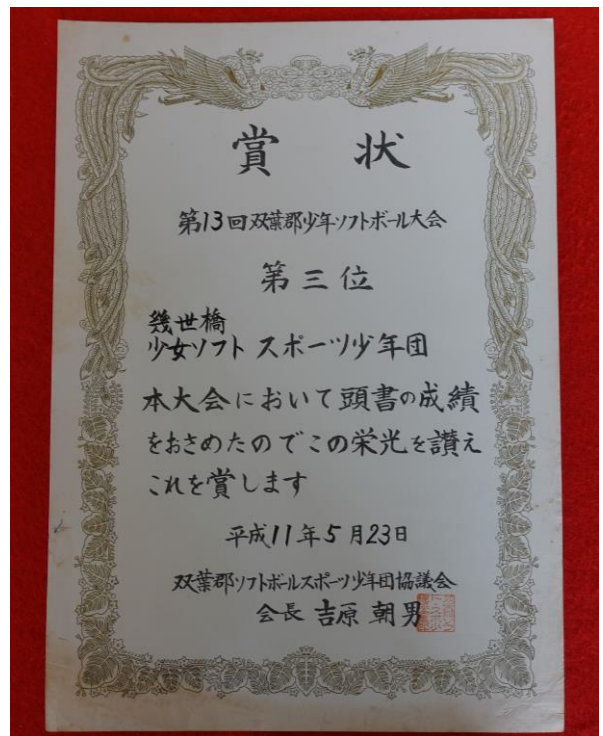 賞状
第13回双葉郡少年ソフトボール大会
第三位
幾世橋
少女ソフト スポーツ少年団
本大会において頭書の成績
をおさめたのでこの栄光を讃え
これを賞します
平成11年5月23日
双葉郡ソフトボールスポーツ少年団協議会
会長 吉原 朝男